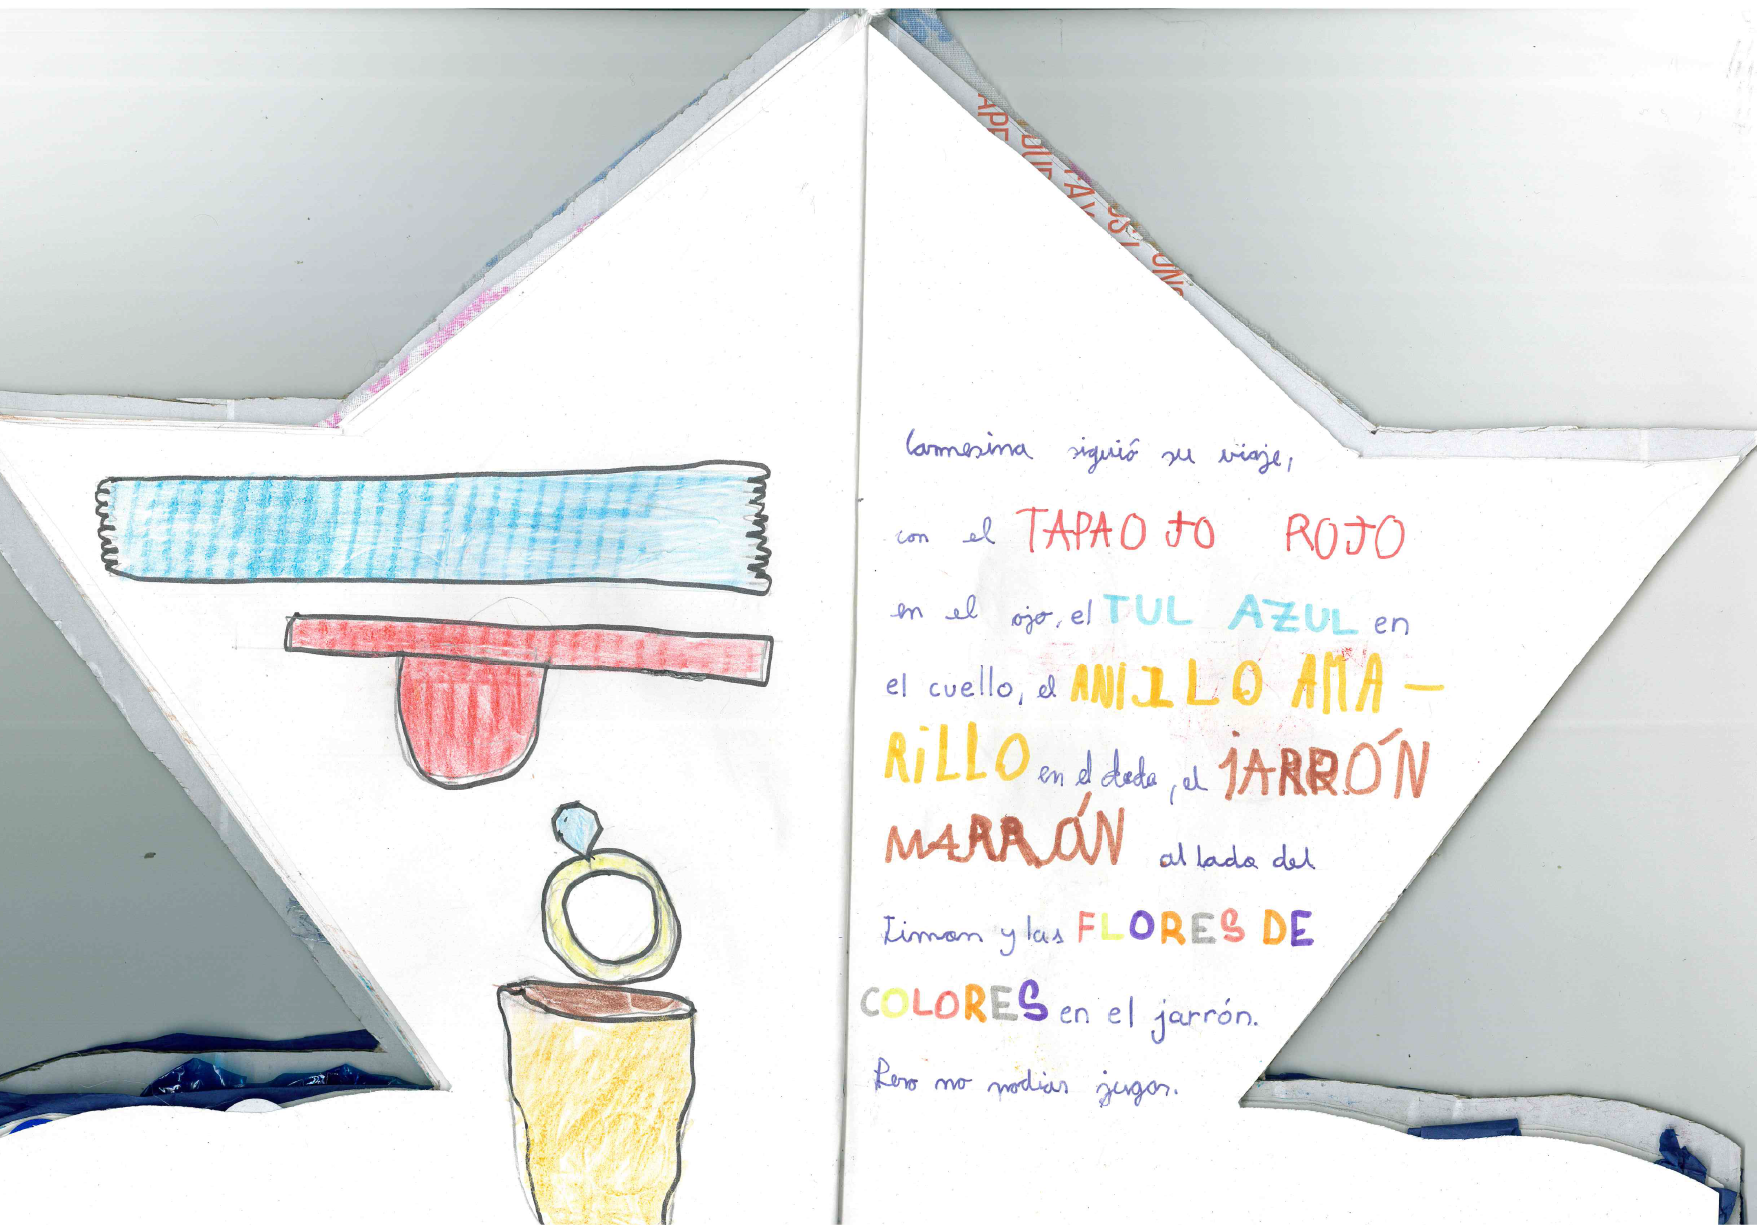 Carmesina siguió su viaje,
con el TAPAOJO ROJO
en el ojo, el TUL AZUL en
el cuello, el ANILLO AMA-
RiLLO en el dedo, el jARRÓN
MARRÓN al lado del
Timon y las FLORES DE
COLORES en el jarrón.
Pero no podias jugar.